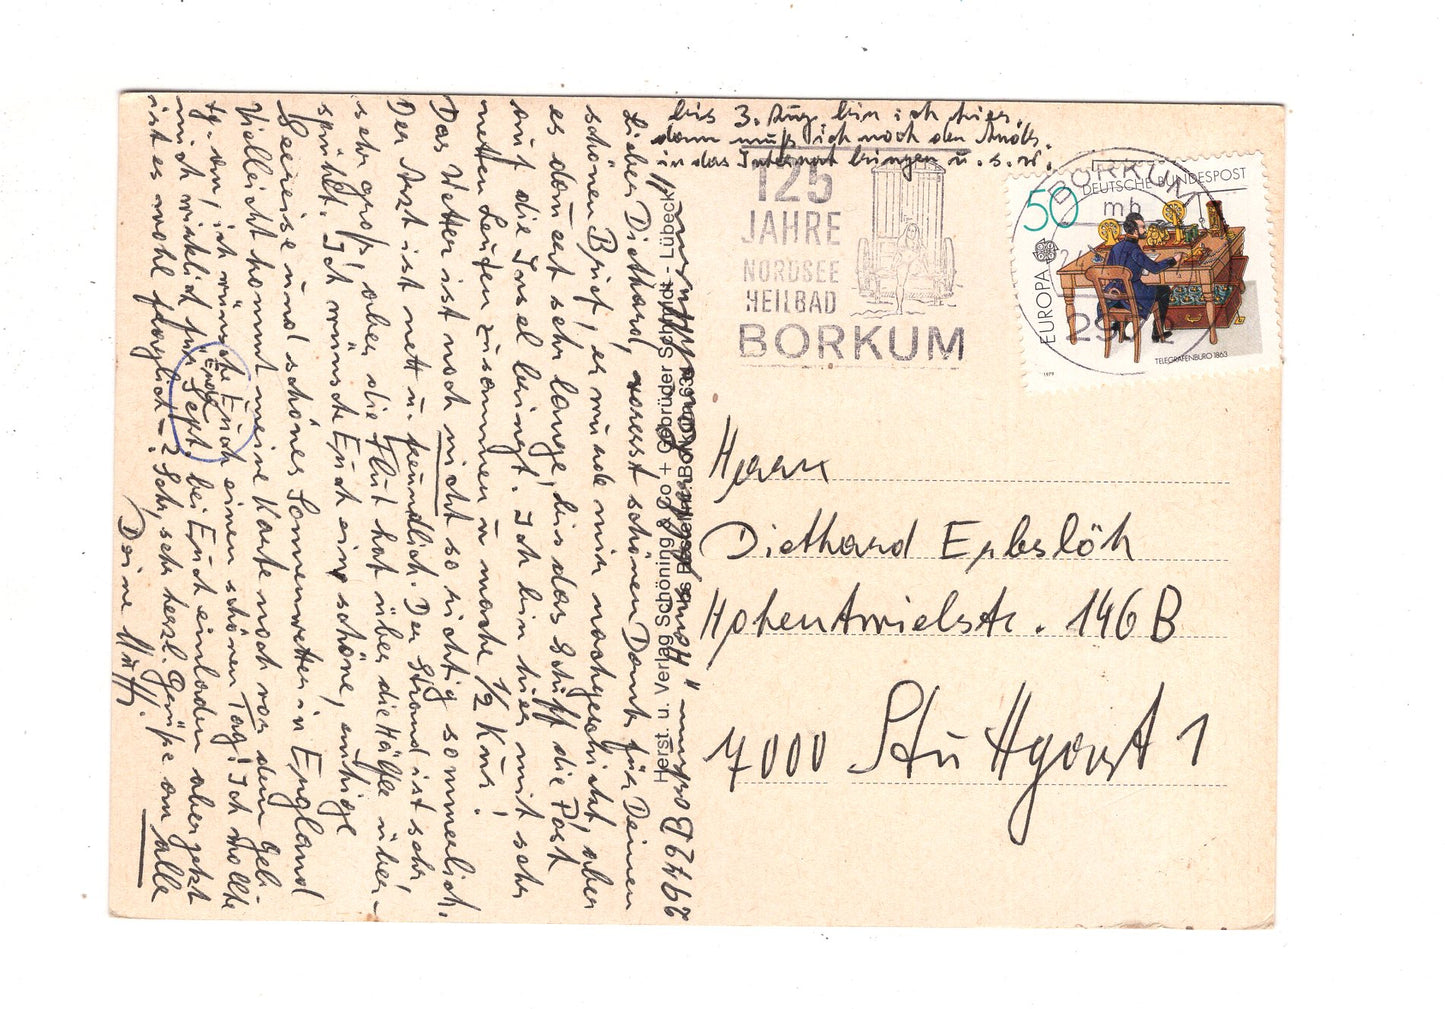 bis 3. Aug. bin ich hier,
dann muß ich noch den Andr.
in das Internat bringen u. s. w.
125
JAHRE
NORDSEE
HEILBAD
BORKUM
BORKUM
mb
2972
50
DEUTSCHE BUNDESPOST
EUROPA
TELEGRAFENBÜRO 1863
1979
Herrn
Diethard Erbslöh
Hohentwielstr. 146 B
7000 Stuttgart 1
Herst. u. Verlag Schöning & Co + Gebrüder Schmidt - Lübeck
Bestell-Nr. BORKUM 634
2972 Borkum
Lieber Diethard, vorerst schönen Dank für Deinen
schönen Brief, er wurde mir nachgeschickt, aber
es dauert sehr lange, bis das Schiff die Post
auf die Insel bringt. Ich bin hier mit sehr
netten Leuten zusammen u. mache 1/2 Kur!
Das Wetter ist noch nicht so richtig sommerlich.
Der Arzt ist nett u. freundlich. Der Strand ist sehr,
sehr groß, aber die Flut hat über die Hälfte über-
spühlt. Ich wünsche Euch eine schöne, ruhige
Seereise und schönes Sonnenwetter in England
Vielleicht kommt meine Karte noch vor dem Geb.
tg. an, ich wünsche Euch einen schönen Tag! Ich wollte
mich wirklich für Ende Sept. bei Euch einladen aber jetzt
ist es wohl fraglich-? Sehr, sehr herzl. Grüße an alle
Deine Mutti.